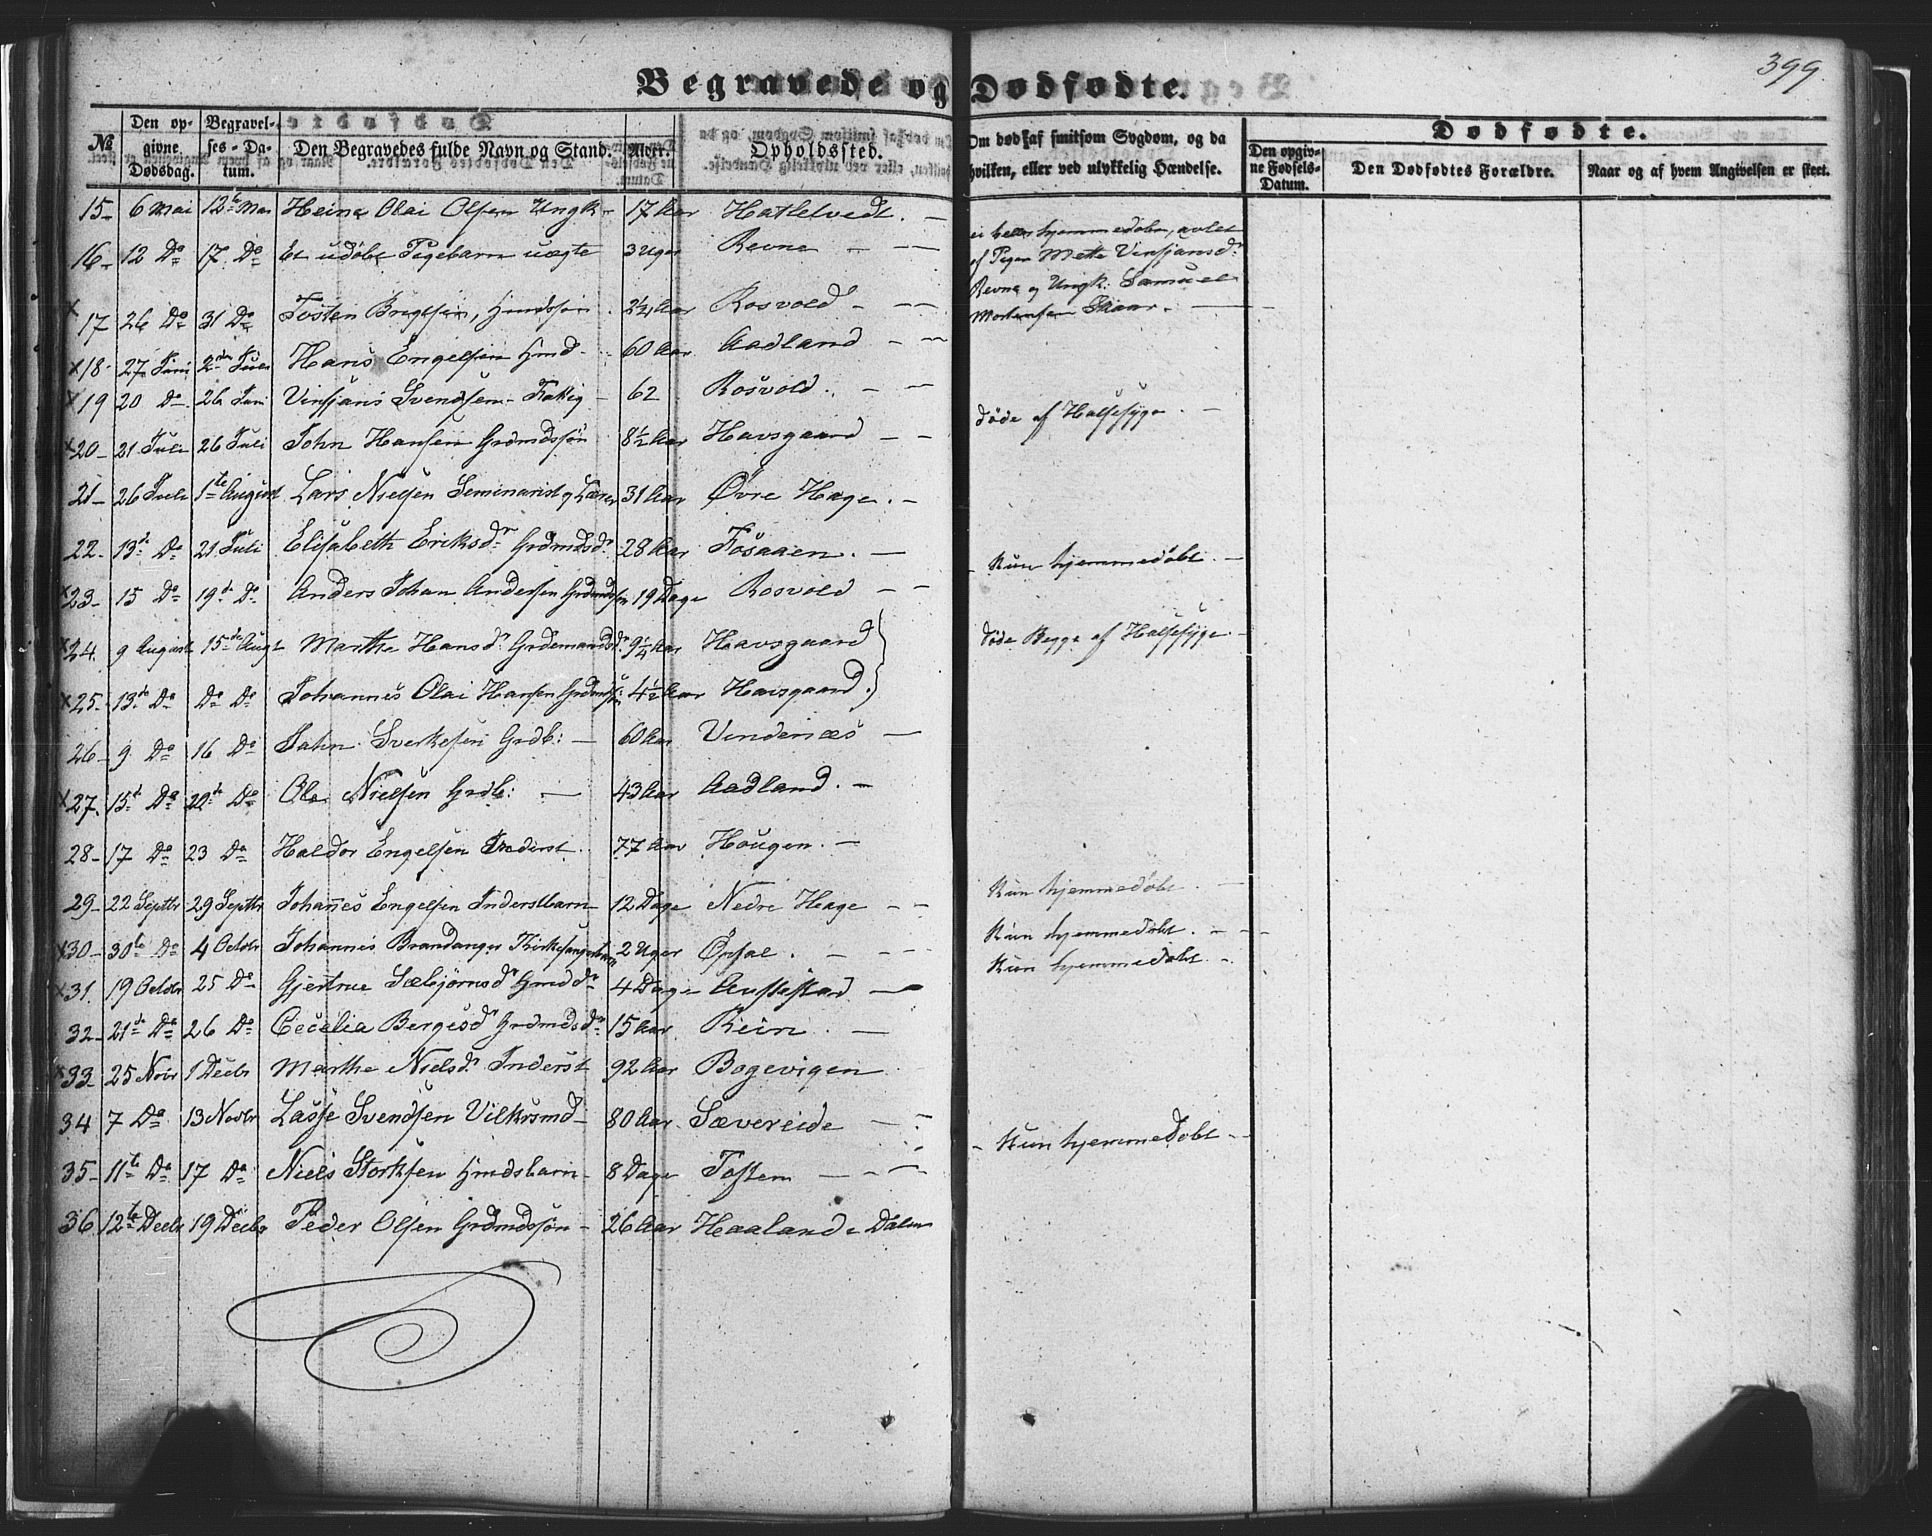 399.
Begravede og Dødfødte.
№ Den opgivne Dødsdag. Begravelses-Datum. Den Begravedes fulde Navn og Stand. Alder. Opholdssted. Om død af smitsom Sygdom, og da hvilken, eller ved ulykkelig Hændelse. Dødfødte.
Den opgivne Fødsels-Datum. Den Dødfødtes Forældre. Naar og af hvem Angivelsen er skeet.
15- 6 Mai 12te Mai Heine Olai Olsen Ungk- 17 Aar Hatletvedt. -
16- 12 Do 17 Do Et udøbt Pigebarn uægte 3 Uger Revne - - ei heller hjemmedøbt, avlet
af Pigen Mette Vinsjansdr
Revne og Ungk. Samuel
Mortensen Skaar. -
x 17 26 Do 31 Do Tosten Brigtsen, Hmdssøn. 2¼ Aar Rosvold - - -
x 18- 27 Juni 2den Juli Hans Engelsen Hmd- 60 Aar Aadland - -
x 19 20 Do 26 Juni Vinsjans Svendsen- Fattig - 62 Rosvold. - -
x 20- 21 Juli 26 Juli John Hansen Grdmdssøn 8½ Aar Havsgaard - - Døde af Halssyge. -
21- 26 Juli 1te August Lars Nielsen Seminarist og Lærer 31 Aar Øvre Hage. -
22- 13de Do 21 Juli Elisabeth Eriksdr Grdmdsdr 28 Aar Fosaaen. -
x 23- 15 Do 19de Do Anders Johan Andersen Grdmdssøn 19 Dage Rosvold - - - Kun hjemmedøbt. -
x 24. 9 August 15de Augt Marthe Hansdr Grdemandsdr 9¼ Aar Havsgaard } Døde Begge af Halssyge -
x 25- 13de Do Do Do Johannes Olai Hansen Grdmdss: 4½ Aar Havsgaard.
26- 9 Do 16 Do John Sverkesen Grdb: - 60 Aar Vindenæs -
x 27. 15de Do 20de Do Ole Nielsen Grdb: - 43 Aar Aadland. -
28- 17 Do 23 Do Haldor Engelsen Inderst. 77 Aar Hougen. -
29- 22 Septbr 29 Septbr Johannes Engelsen Inderstbarn 12 Dage Nedre Hage - - Kun hjemmedøbt. -
x 30- 30te Do 4 Octbr Johannes Brandanger Kirkesangerbarn 2 Uger Opsal. - - - Kun hjemmedøbt. - - -
x 31. 19 Octbr 25 Do Gjertrue Sæbjørnsdr Hmddr 4 Dage Austestad - Kun hjemmedøbt -.
32- 21de Do 26 Do Cecelia Bergesdr Grdmdsdr 15 Aar Rein. -
x 33- 25 Novr 1 Decbr Marthe Nielsdr Inderst 92 Aar Bogevigen
34 7 Do 13 Novbr Lasse Svendsen Vilkrsmd- 80 Aar. Sævereide - -
35- 11te Do 17 Do Niels Storksen Hmdsbarn - 8 Dage Tostem - - - - Kun hjemmedøbt -
36 12te Decbr 19 Decbr Peder Olsen Grdmdssøn - 26 Aar Haaland i Dalen